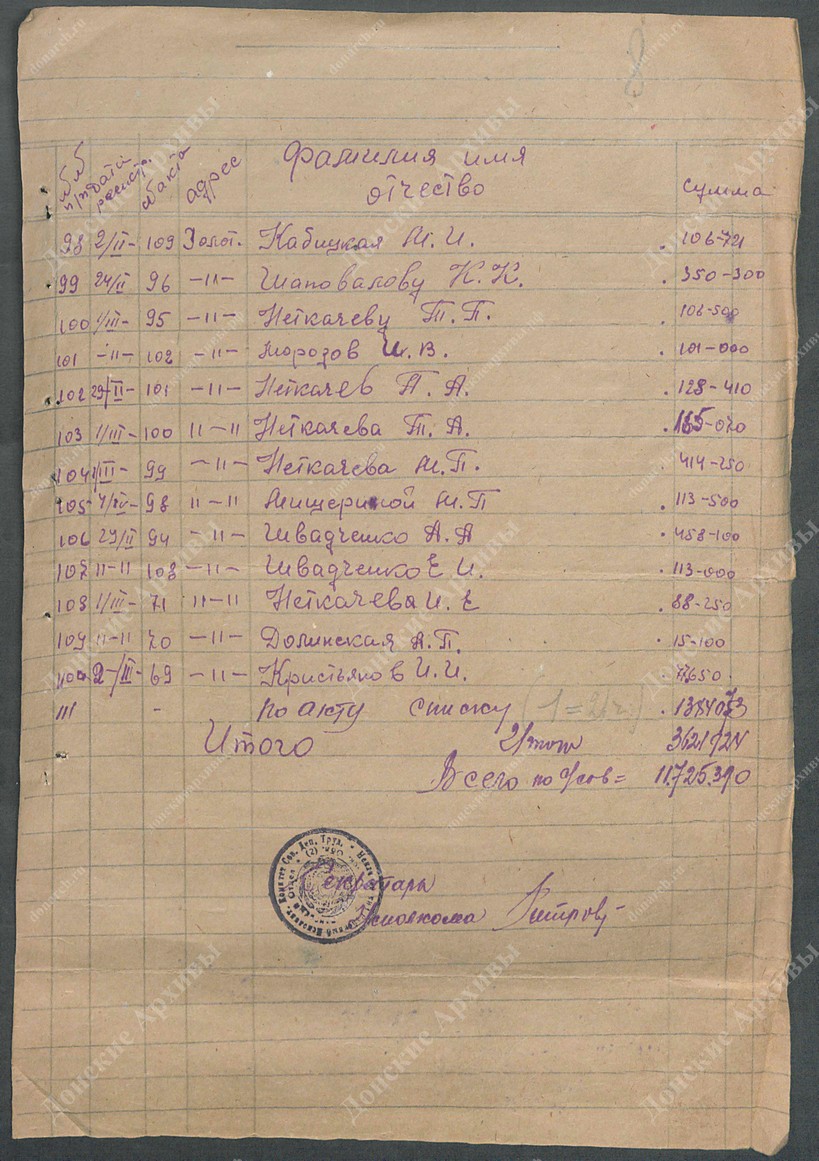 8
№№ п/п дата регистр. № акта адрес фамилия имя отчество сумма
98 2/II- 109 Золот. Кабицкая М. И. 106-721
99 24/II 96 -11- Шаповалову К. К. 350-300
100 1/III- 95 -11- Неткачеву Т. П. 106-500
101 -11- 102 -11- Морозов И. В. 101-000
102 29/II- 101 -11- Неткачев П. А. 128-410
103 1/III- 100 11-11 Неткачева Т. А. 165-020
104 1/III- 99 -11- Неткачева М. П. 414-250
105 98 11-11 Мищериной М. П 113-500
106 29/II 94 -11- Швадченко А. А 458-100
107 11-11 108 -11- Швадченко Е. И. 113-000
108 1/III- 71 11-11 Неткачева И. Е 88-250
109 11-11 70 -11- Долинская А. П. 15-100
2-/III- 69 -11- Кристьянов И. И.
111 - по акту списку
Итого Итого
Всего по 11.725.390
Секретарь
Исполкома